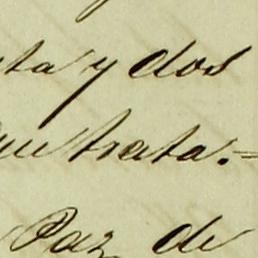 ta y dos
que trata.=
Paz de